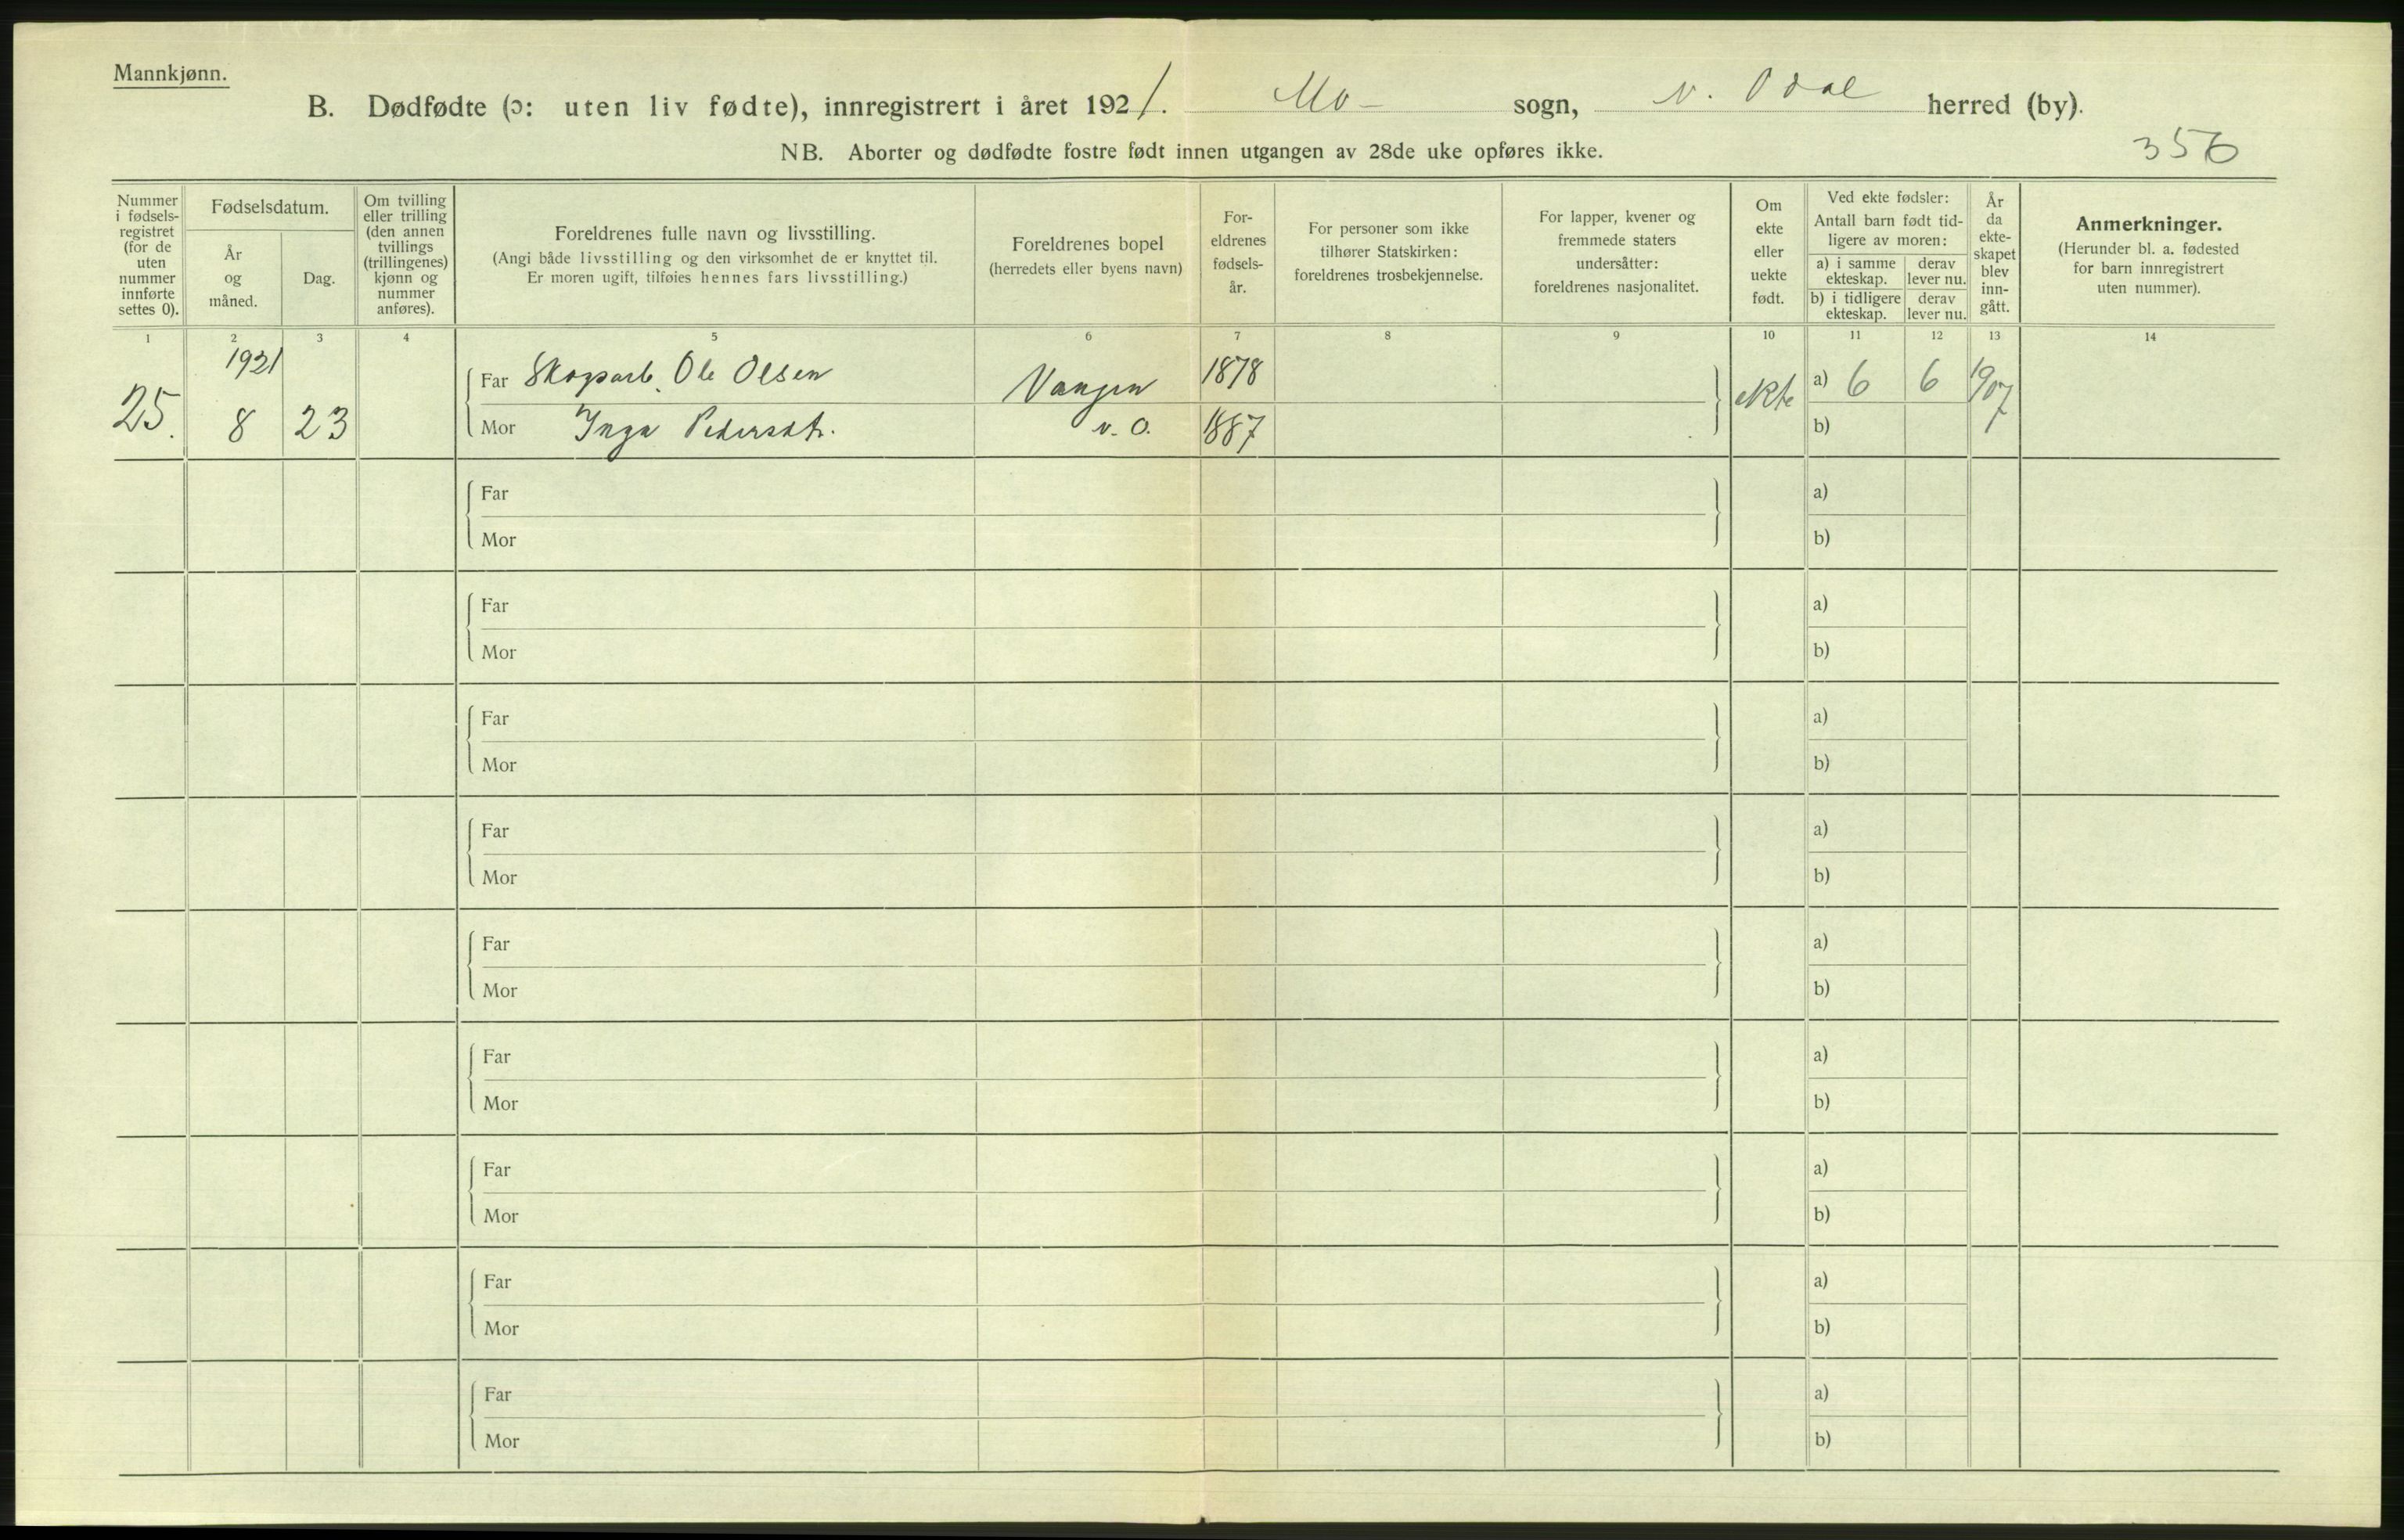 Mannkjønn.
B. Dødfødte (ɔ: uten liv fødte), innregistrert i året 1921. Mo - sogn, n. Odal herred (by).
NB. Aborter og dødfødte fostre født innen utgangen av 28de uke opføres ikke.
356
Nummer i fødsels-registret (for de uten nummer innførte settes 0).
Fødselsdatum.
År og måned.
Dag.
Om tvilling eller trilling (den annen tvillings (trillingenes) kjønn og nummer anføres).
Foreldrenes fulle navn og livsstilling.
(Angi både livsstilling og den virksomhet de er knyttet til.
Er moren ugift, tilføies hennes fars livsstilling.)
Foreldrenes bopel
(herredets eller byens navn)
For-eldrenes fødsels-år.
For personer som ikke tilhører Statskirken: foreldrenes trosbekjennelse.
For lapper, kvener og fremmede staters undersåtter: foreldrenes nasjonalitet.
Om ekte eller uekte født.
Ved ekte fødsler:
Antall barn født tid-ligere av moren:
a) i samme ekteskap.
derav lever nu.
b) i tidligere ekteskap.
derav lever nu.
År da ekte-skapet blev inn-gått.
Anmerkninger.
(Herunder bl. a. fødested for barn innregistrert uten nummer).
1 2 3 4 5 6 7 8 9 10 11 12 13 14
25. 1921 8 23
Far Skogsarb. Ole Olsen Vangen 1878 ekte a) 6 6 1907
Mor Inga Pedersdtr. n. O. 1887 b)
Far a)
Mor b)
Far a)
Mor b)
Far a)
Mor b)
Far a)
Mor b)
Far a)
Mor b)
Far a)
Mor b)
Far a)
Mor b)
Far a)
Mor b)
Far a)
Mor b)